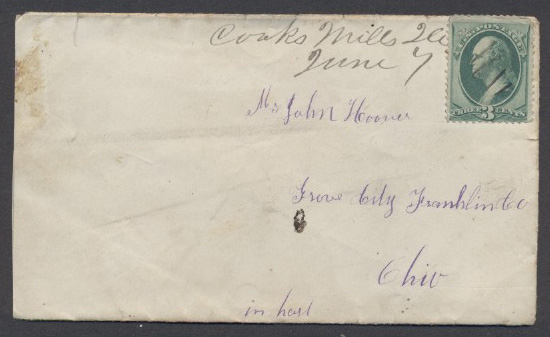 Cooks Mills Ills
June 7
U.S. POSTAGE
THREE 3 CENTS
Mr John Hoover
Grove City Franklin Co
Ohio
in hast